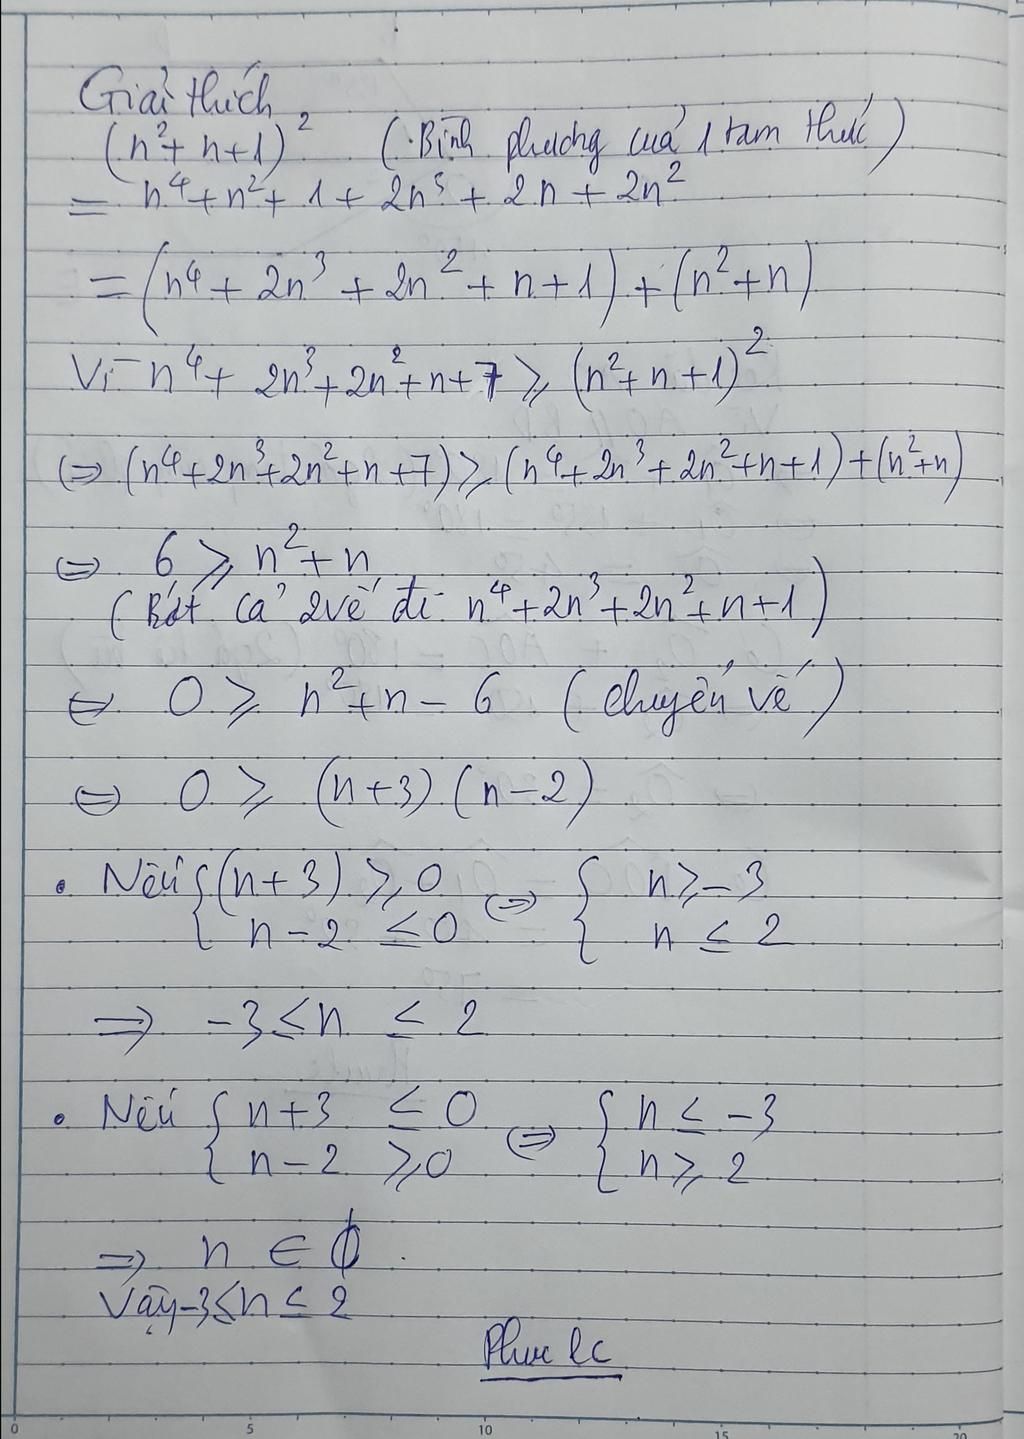 Giải thích
(n²+n+1)² (Bình phương của 1 tam thức)
= n⁴+n²+1+2n³+2n+2n²
= (n⁴+2n³+2n²+n+1)+(n²+n)
Vì n⁴+2n³+2n²+n+7 ⩾ (n²+n+1)²
⇔ (n⁴+2n³+2n²+n+7) ⩾ (n⁴+2n³+2n²+n+1)+(n²+n)
⇔ 6 ⩾ n²+n
(Bớt cả 2 vế đi n⁴+2n³+2n²+n+1)
⇔ 0 ⩾ n²+n-6 (chuyển vế)
⇔ 0 ⩾ (n+3)(n-2)
• Nếu { (n+3) ⩾ 0 ⇔ { n ⩾ -3
n-2 ≤ 0 n ≤ 2
⇒ -3 ≤ n ≤ 2
• Nếu { n+3 ≤ 0 ⇔ { n ≤ -3
n-2 ⩾ 0 n ⩾ 2
⇒ n ∈ ∅.
Vậy -3 ≤ n ≤ 2
0 5 10 15 20